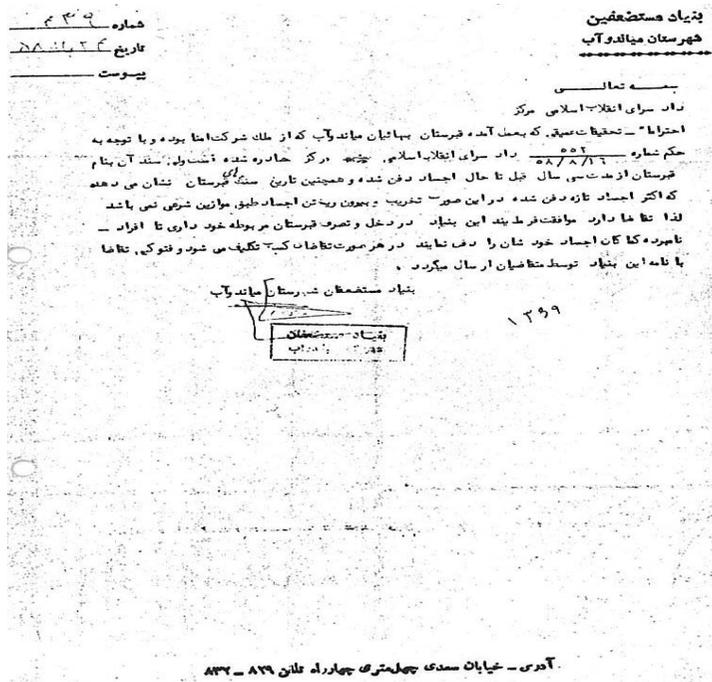 بنیاد مستضعفین
شهرستان میاندوآب
شماره ۴۳۹
تاریخ ۲۴ آبان ۵۸
پیوست
بسمه تعالی
داد سرای انقلاب اسلامی مرکز
احتراما" ــ تحقیقات عمیق که بعمل آمده قبرستان بهائیان میاندوآب که از ملك شرکت امنا بوده و با توجه به
حکم شماره ۵۵۲ ۵۸/۸/۱۶ داد سرای انقلاب اسلامی مرکز صادره شده است ولی سند آن بنام
قبرستان از مدت سی سال قبل تا حال اجساد دفن شده و همچنین تاریخ سنگ های قبرستان نشان می دهد
که اکثر اجساد تازه دفن شده در این صورت تخریب و بیرون ریختن اجساد طبق موازین شرعی نمی باشد
لذا تقاضا دارد موافقت فرمایند این بنیاد در دخل و تصرف قبرستان مربوطه خود داری تا افراد ــ
نامبرده کماکان اجساد خود شان را دفن نمایند در هر صورت تقاضای کسب تکلیف می شود و فتوکپی تقاضا
با نامه این بنیاد توسط متقاضیان ارسال میگردد .
بنیاد مستضعفان شهرستان میاندوآب
بنیاد مستضعفان
۱۳۳۹
آدرس ــ خیابان سعدی چهل متری چهارراه تلفن ۸۲۹ ــ ۸۳۲